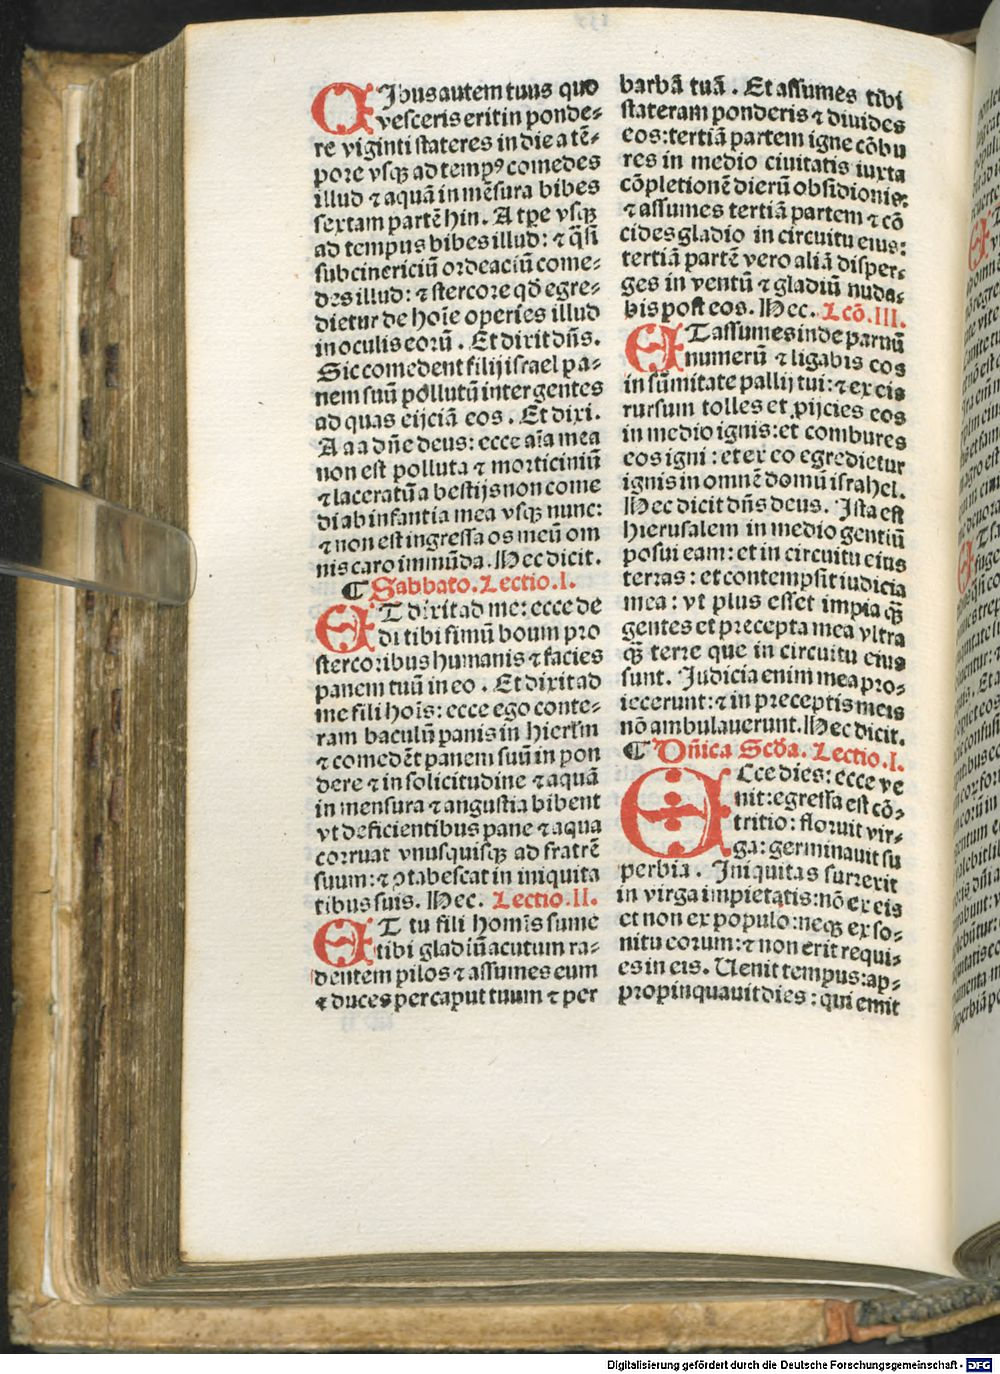 CIbus autem tuus quo
vesceris erit in ponde⸗
re viginti stateres in die a tē⸗
pore vsqꝫ ad tempꝰ comedes
illud ⁊ aquā in mēsura bibes
sextam partē hin. A tpe vsqꝫ
ad tempus bibes illud: ⁊ q̄si
subcinericiū ordeaciū come⸗
des illud: ⁊ stercore qd̄ egre⸗
dietur de hoīe operies illud
in oculis eorū. Et dixit dn̄s.
Sic comedent filij israel pa⸗
nem suū pollutū inter gentes
ad quas eijciā eos. Et dixi.
A a a dn̄e deus: ecce aīa mea
non est polluta ⁊ morticiniū
⁊ laceratū a bestijs non come
di ab infantia mea vsqꝫ nunc:
⁊ non est ingressa os meū om
nis caro immūda. Hec dicit.
¶ Sabbato. Lectio. I.
ET dixit ad me: ecce de
di tibi fimū boum pro
stercoribus humanis ⁊ facies
panem tuū in eo. Et dixit ad
me fili hoīs: ecce ego conte⸗
ram baculū panis in hierlm̄
⁊ comedēt panem suū in pon
dere ⁊ in solicitudine ⁊ aquā
in mensura ⁊ angustia bibent
vt deficientibus pane ⁊ aqua
corruat vnusquisqꝫ ad fratrē
suum: ⁊ ꝯtabescat in iniquita
tibus suis. Hec. Lectio. II.
ET tu fili homīs sume
tibi gladiū acutum ra⸗
dentem pilos ⁊ assumes eum
⁊ duces per caput tuum ⁊ per
barbā tuā. Et assumes tibi
stateram ponderis ⁊ diuides
eos: tertiā partem igne cōbu
res in medio ciuitatis iuxta
cōpletionē dierū obsidionis:
⁊ assumes tertiā partem ⁊ cō
cides gladio in circuitu eius:
tertiā partē vero aliā disper⸗
ges in ventū ⁊ gladiū nuda⸗
bis post eos. Hec. Lcō. III.
ET assumes inde paruū
numerū ⁊ ligabis eos
in sūmitate pallij tui: ⁊ ex eis
rursum tolles et ꝓijcies eos
in medio ignis: et combures
eos igni: et ex eo egredietur
ignis in omnē domū israhel.
Hec dicit dn̄s deus. Ista est
hierusalem in medio gentiū
posui eam: et in circuitu eius
terras: et contempsit iudicia
mea: vt plus esset impia qꝫ̄
gentes et precepta mea vltra
qꝫ̄ terre que in circuitu eius
sunt. Iudicia enim mea pro⸗
iecerunt: ⁊ in preceptis meis
nō ambulauerunt. Hec dicit.
¶ Dn̄ica Scd̄a. Lectio. I.
ECce dies: ecce ve
nit: egressa est cō⸗
tritio: floruit vir⸗
ga: germinauit su
perbia. Iniquitas surrexit
in virga impietatis: nō ex eis
et non ex populo: neqꝫ ex so⸗
nitu eorum: ⁊ non erit requi⸗
es in eis. Uenit tempus: ap⸗
propinquauit dies: qui emit
Digitalisierung gefördert durch die Deutsche Forschungsgemeinschaft - DFG